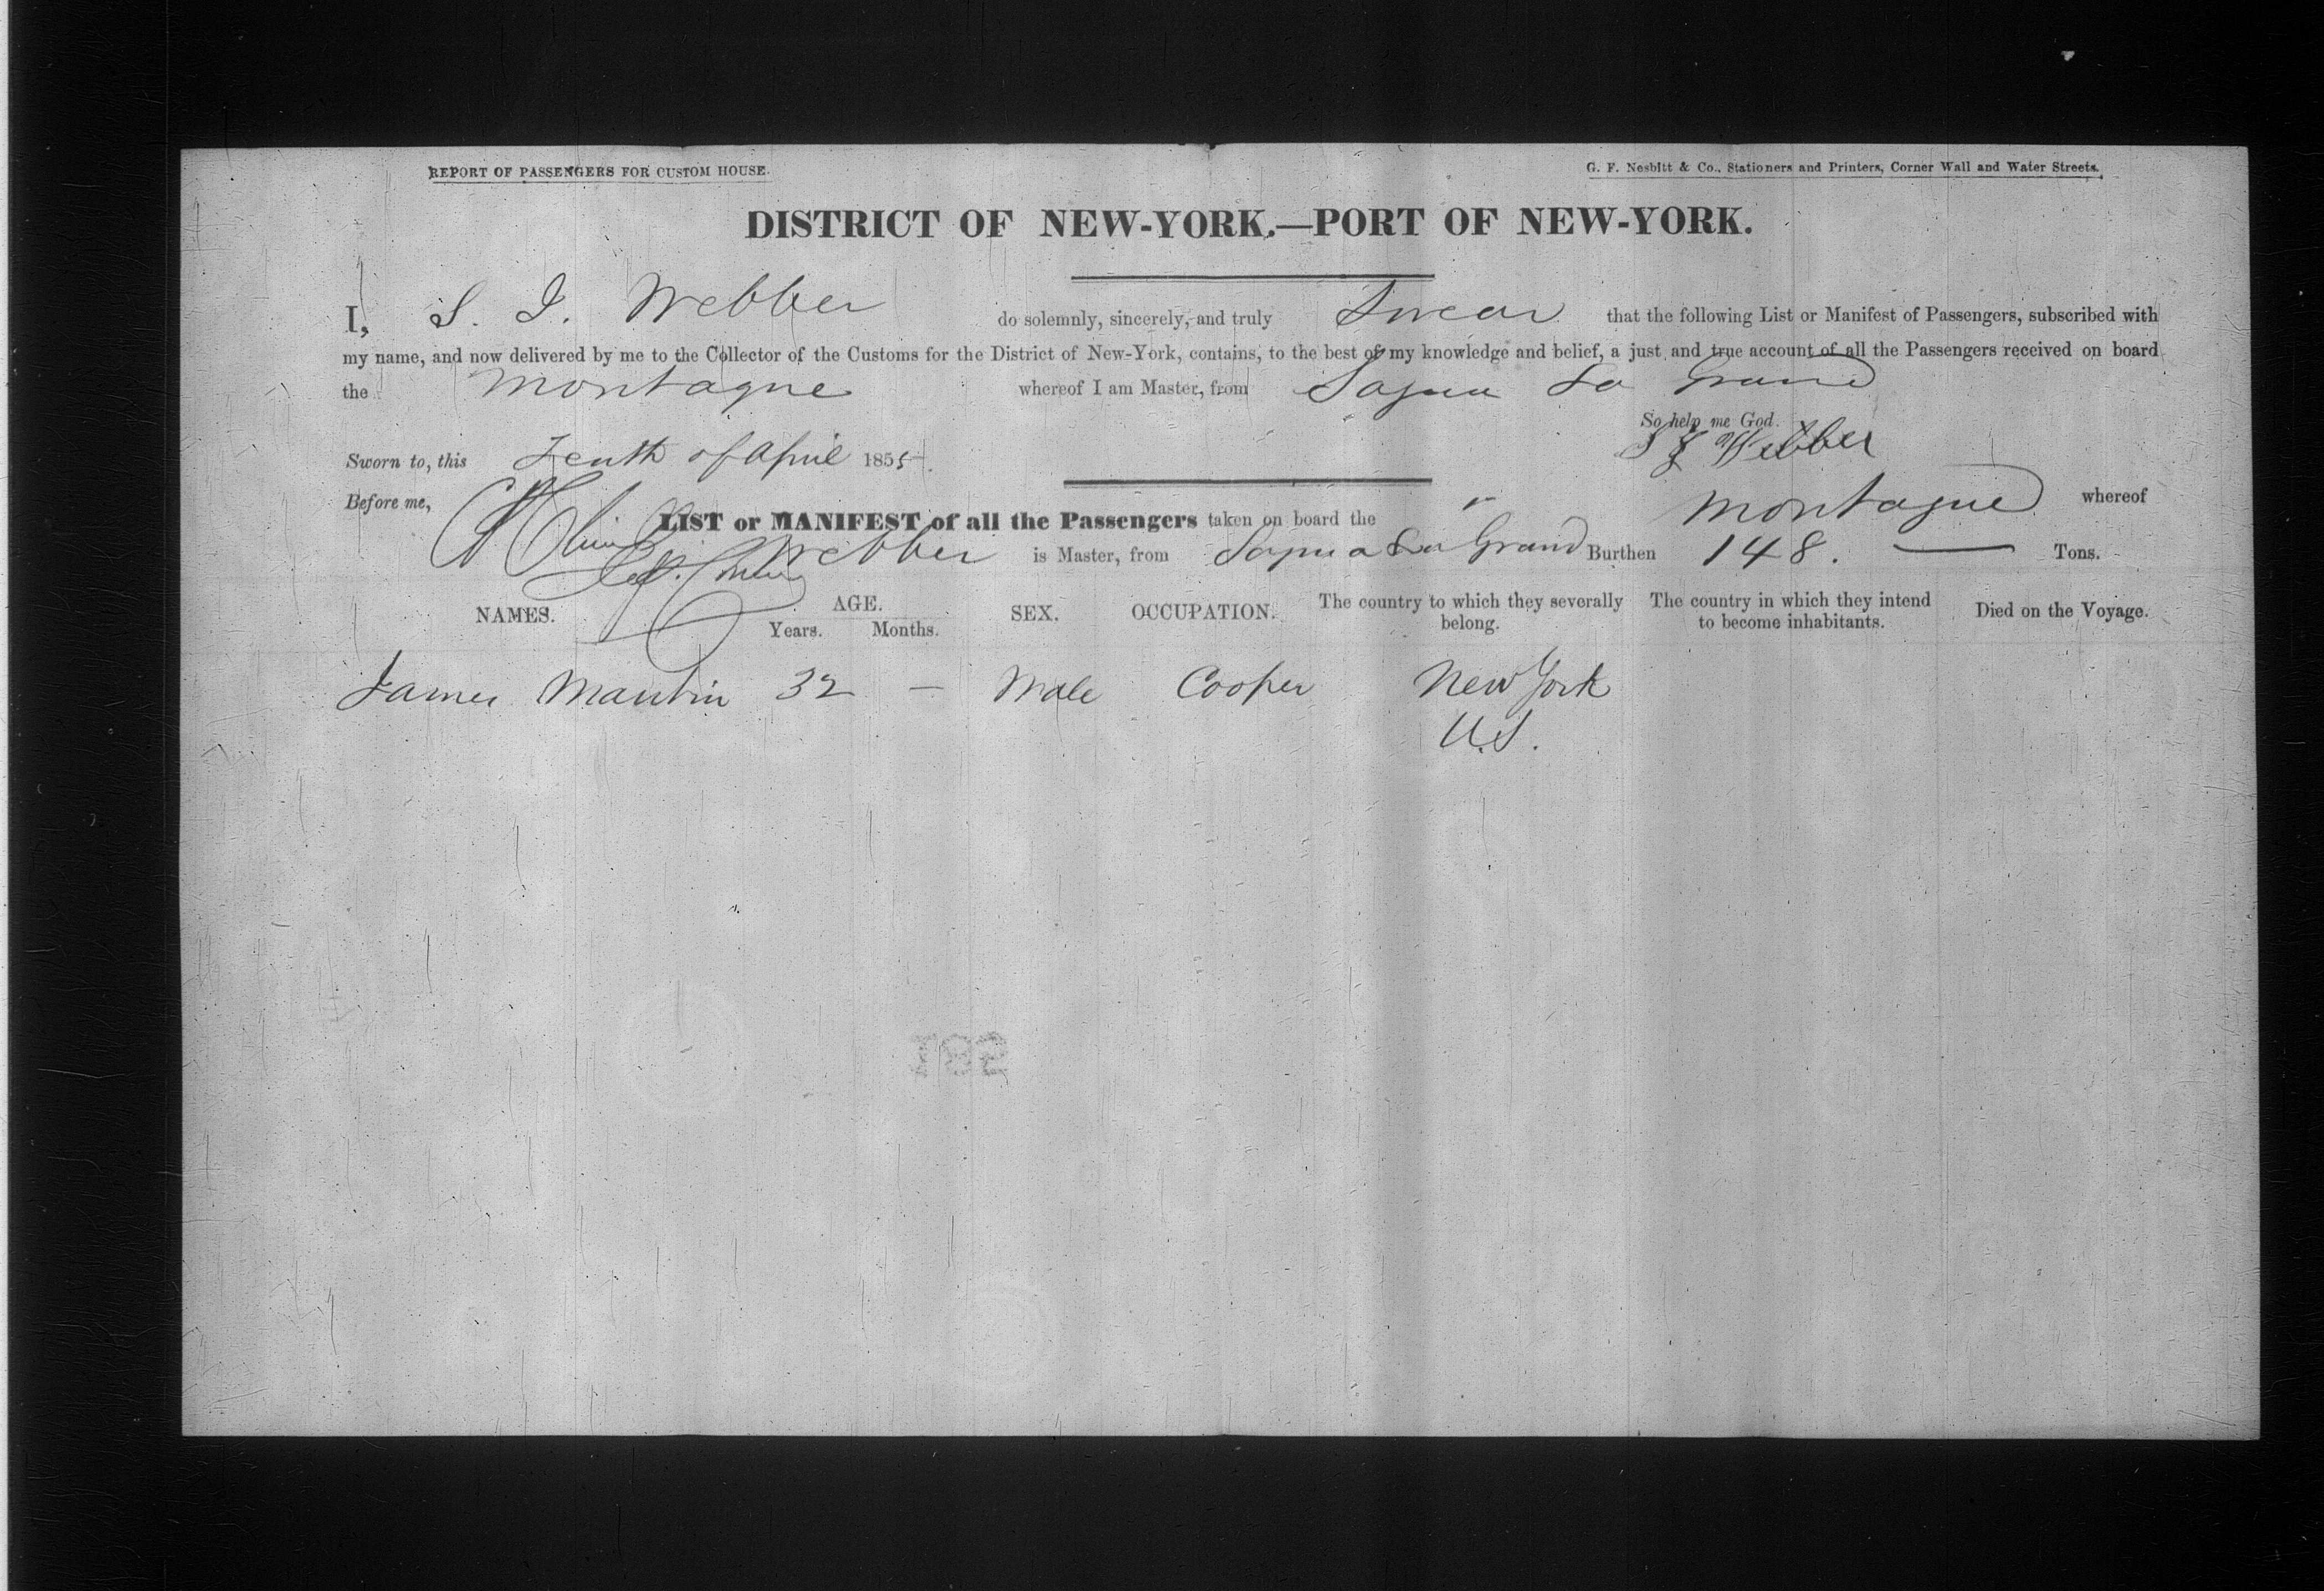 REPORT OF PASSENGERS FOR CUSTOM HOUSE.
G. F. Nesbitt & Co., Stationers and Printers, Corner Wall and Water Streets.
DISTRICT OF NEW-YORK,—PORT OF NEW-YORK.
I, S. J. Webber do solemnly, sincerely, and truly Swear that the following List or Manifest of Passengers, subscribed with
my name, and now delivered by me to the Collector of the Customs for the District of New-York, contains, to the best of my knowledge and belief, a just and true account of all the Passengers received on board
the Montague whereof I am Master, from Sagua La Grand
So help me God.
S J Webber
Sworn to, this Tenth of April 1855.
Before me,
LIST or MANIFEST of all the Passengers taken on board the Montague whereof
Webber is Master, from Sagua La Grand Burthen 148. — Tons.
NAMES. AGE. Years. Months. SEX. OCCUPATION. The country to which they severally belong. The country in which they intend to become inhabitants. Died on the Voyage.
James Mantin 32 — Male Cooper New York
U.S.